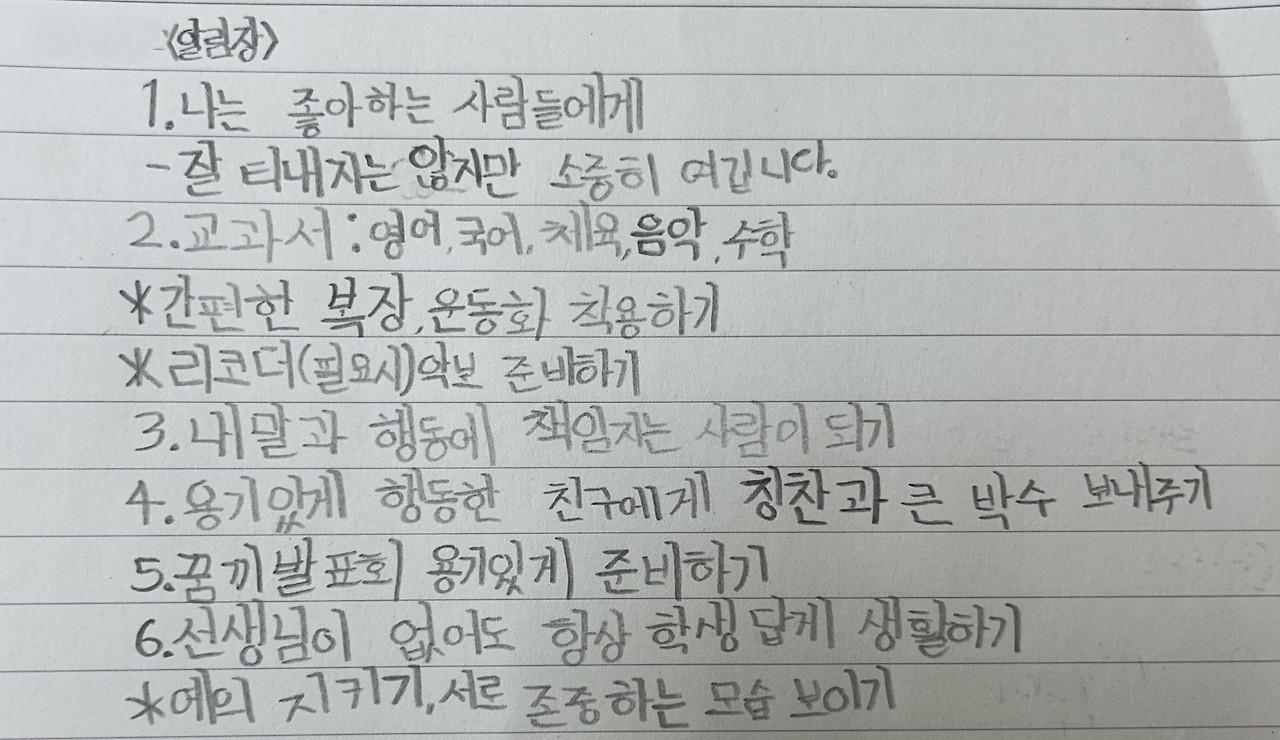 <알림장>
1.나는 좋아하는 사람들에게
-잘 티내지는 않지만 소중히 여깁니다.
2.교과서:영어,국어,체육,음악,수학
*간편한 복장,운동화 착용하기
*리코더(필요시)악보 준비하기
3.내 말과 행동에 책임지는 사람이 되기
4.용기있게 행동한 친구에게 칭찬과 큰 박수 보내주기
5.꿈끼발표회 용기있게 준비하기
6.선생님이 없어도 항상 학생답게 생활하기
*예의 지키기,서로 존중하는 모습 보이기